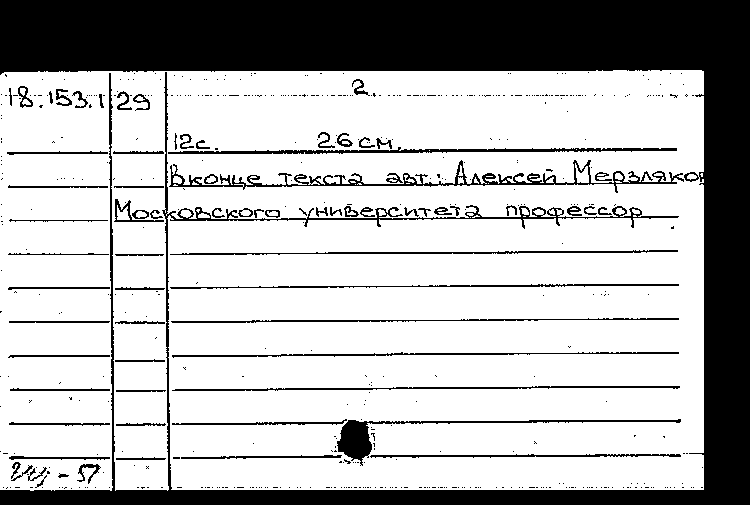 2.
18.153.1 29
12с. 26 см.
В конце текста авт.: Алексей Мерзляков
Московского университета профессор
- 57